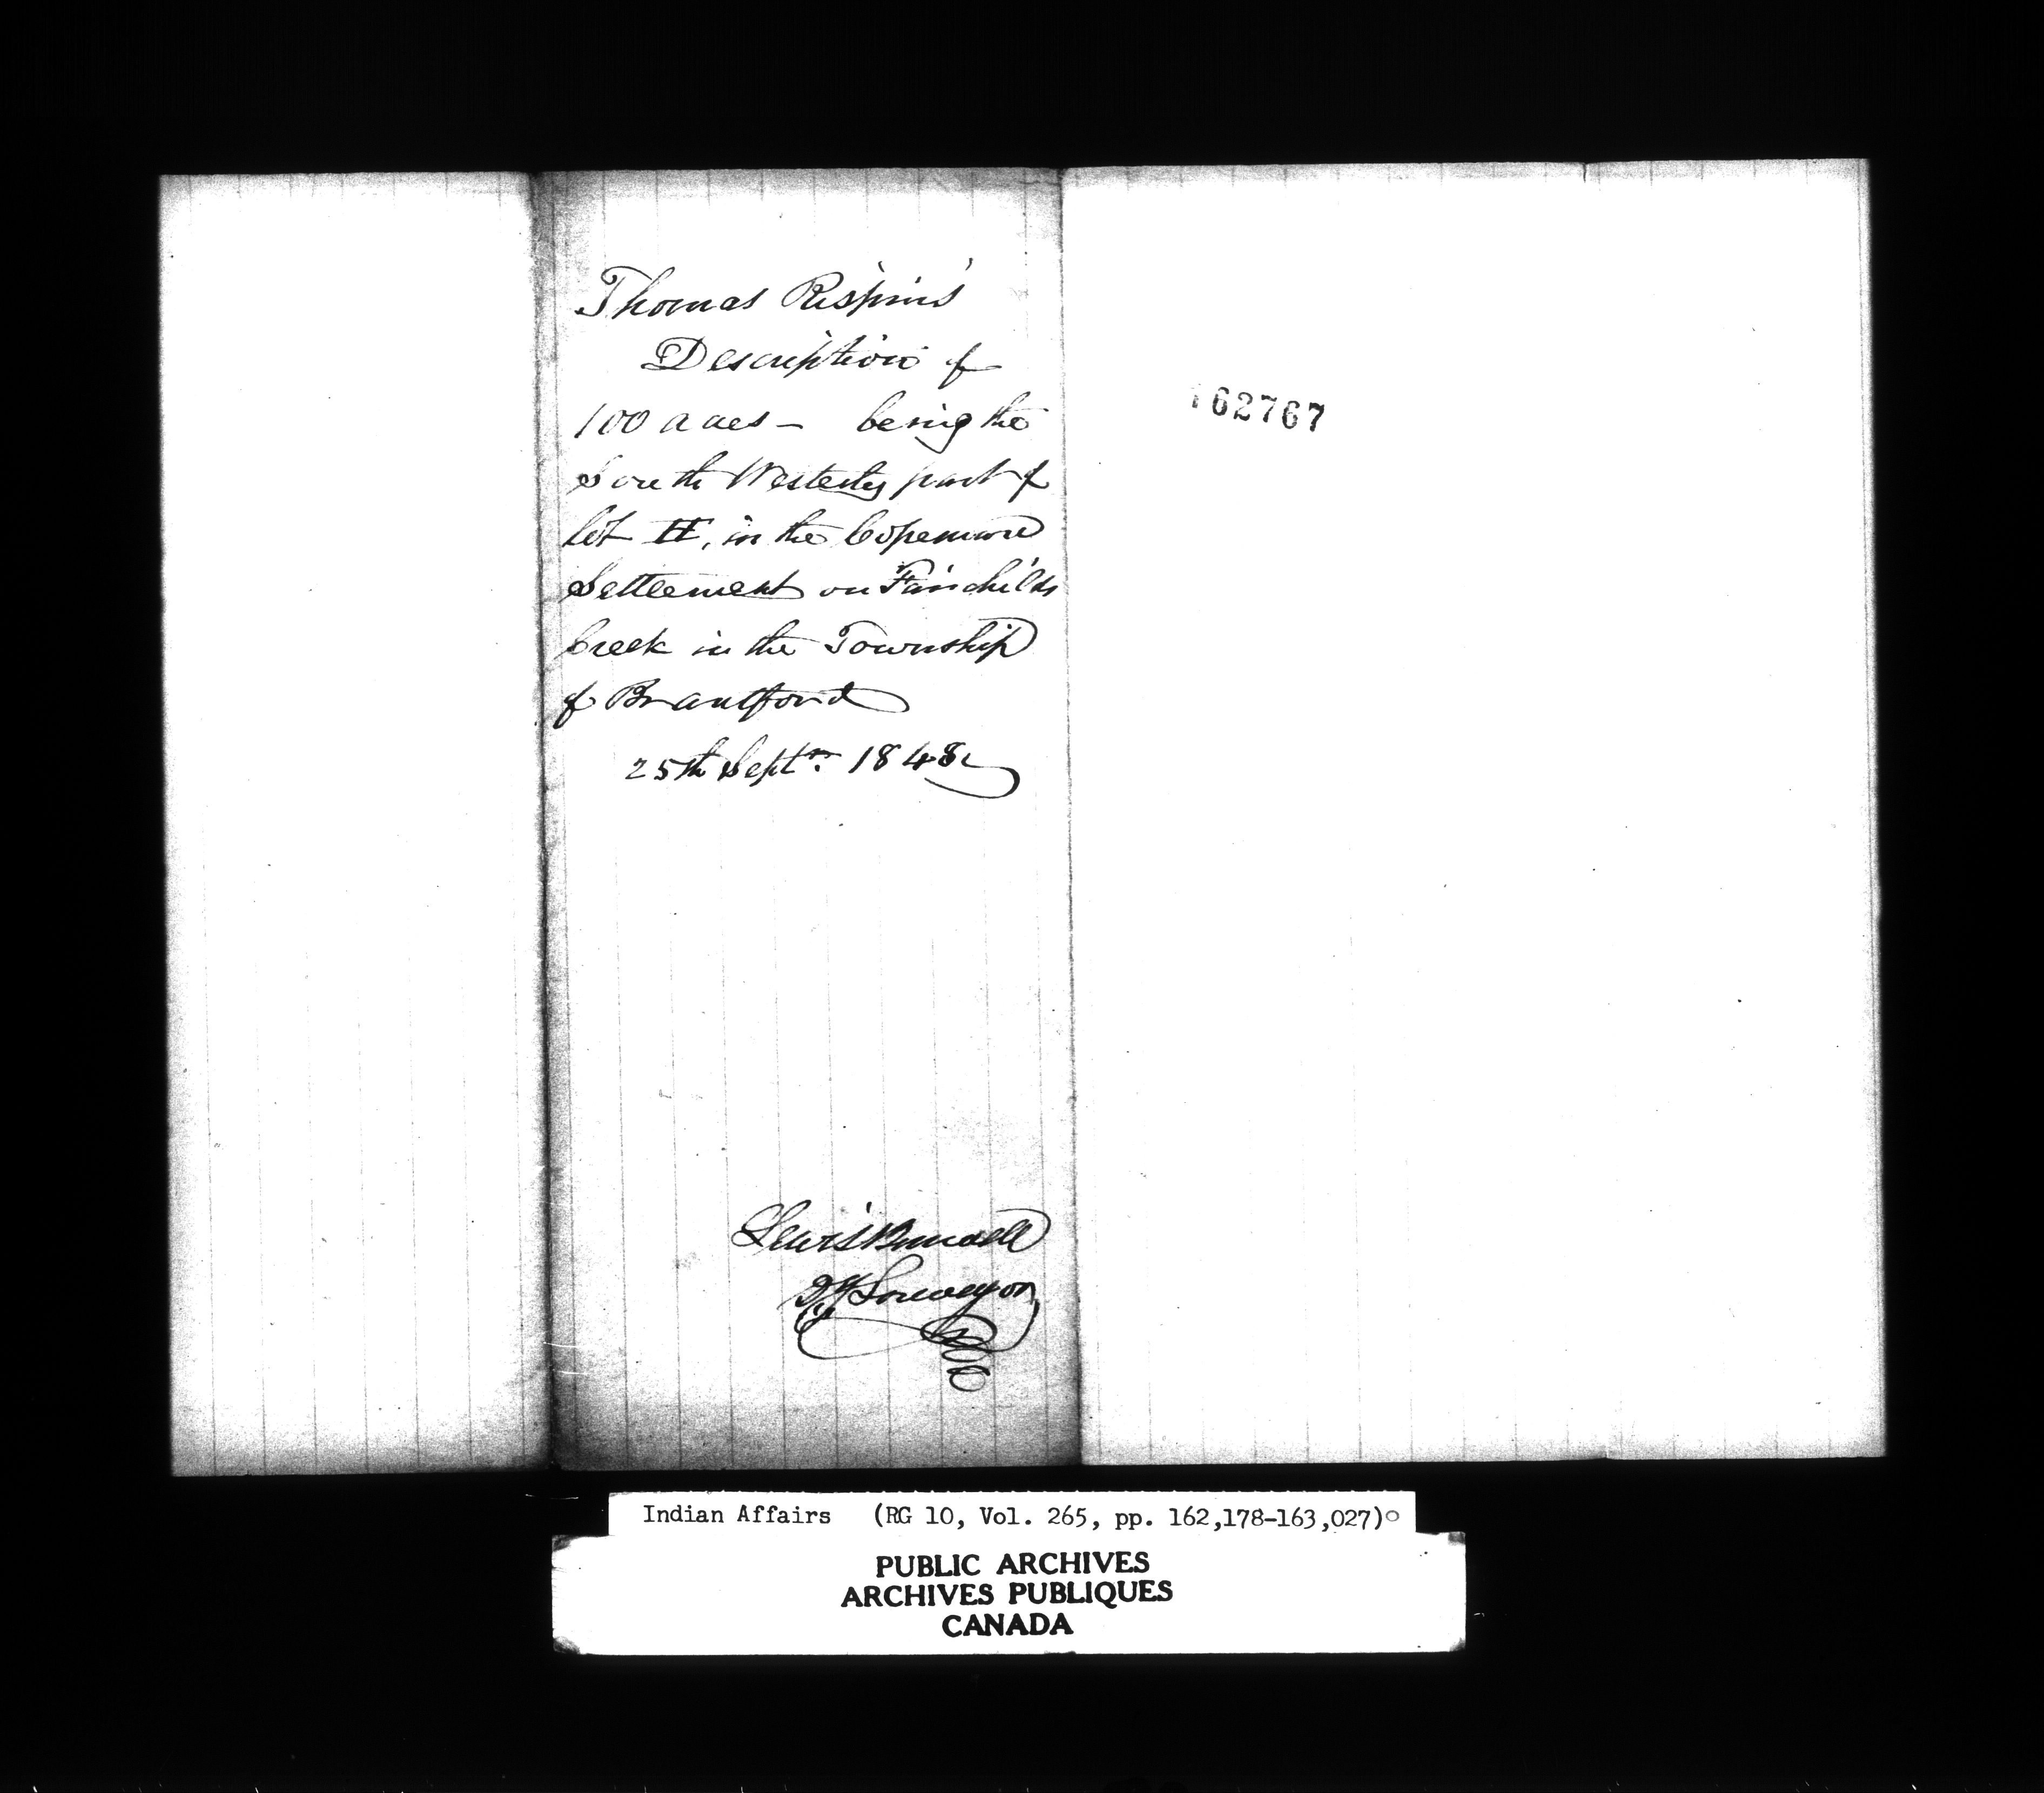 Thomas Rispins'
Description of
100 acres – being the
South Westerly part of
lot II, in the Copeman
Settlement on Fairchilds
Creek in the Township
of Brantford
25th Septr. 1848
162767
Lewis Burwell
Dy Surveyor
Indian Affairs (RG 10, Vol. 265, pp. 162,178-163,027)
PUBLIC ARCHIVES
ARCHIVES PUBLIQUES
CANADA